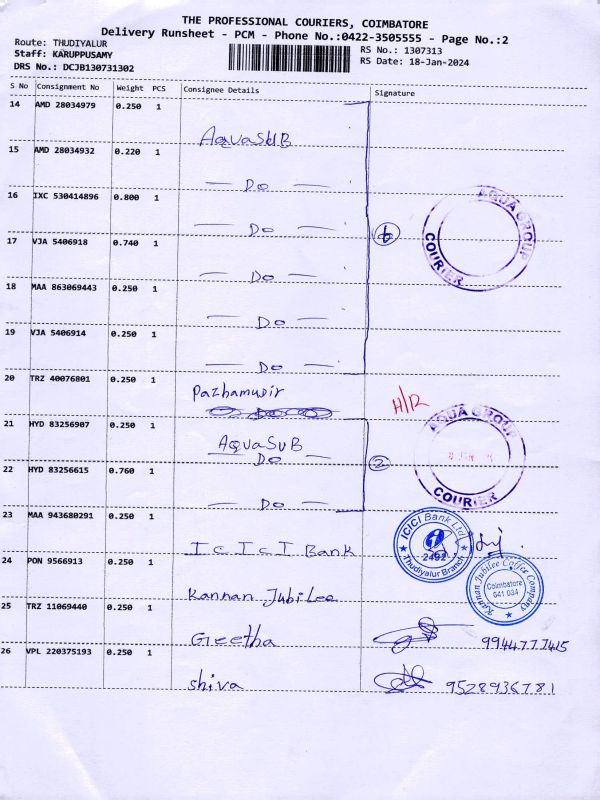 THE PROFESSIONAL COURIERS, COIMBATORE
Delivery Runsheet - PCM - Phone No.:0422-3505555 - Page No.:2
Route: THUDIYALUR
Staff: KARUPPUSAMY
DRS No.: DCJB130731302
RS No.: 1307313
RS Date: 18-Jan-2024
S No Consignment No Weight PCS Consignee Details Signature
14 AMD 28034979 0.250 1
AquaSUB
15 AMD 28034932 0.220 1
— Do —
16 IXC 530414896 0.800 1
— Do — 6
AQUA GROUP COURIER
17 VJA 5406918 0.740 1
— Do —
18 MAA 863069443 0.250 1
— Do —
19 VJA 5406914 0.250 1
— Do —
20 TRZ 40076801 0.250 1
Pazhamudir H/R
21 HYD 83256907 0.250 1
AquaSUB
— Do — 2
AQUA GROUP COURIER
22 HYD 83256615 0.760 1
— Do —
23 MAA 943680291 0.250 1
I C I C I Bank
ICICI Bank Ltd 2492 Thudiyalur Branch
24 PON 9566913 0.250 1
Kannan Jubilee
Kannan Jubilee Coffee Company Coimbatore 641 034
25 TRZ 11069440 0.250 1
Geetha
26 VPL 220375193 0.250 1
shiva 9528936781